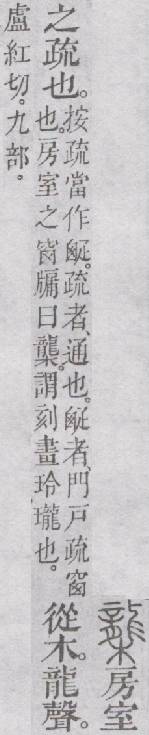 房室
之疏也。
按疏當作𤕟。疏者、通也。𤕟者、門戶疏窗
也。房室之窗牖曰櫳。謂刻畫玲瓏也。
從木。龍聲。
盧紅切。九部。